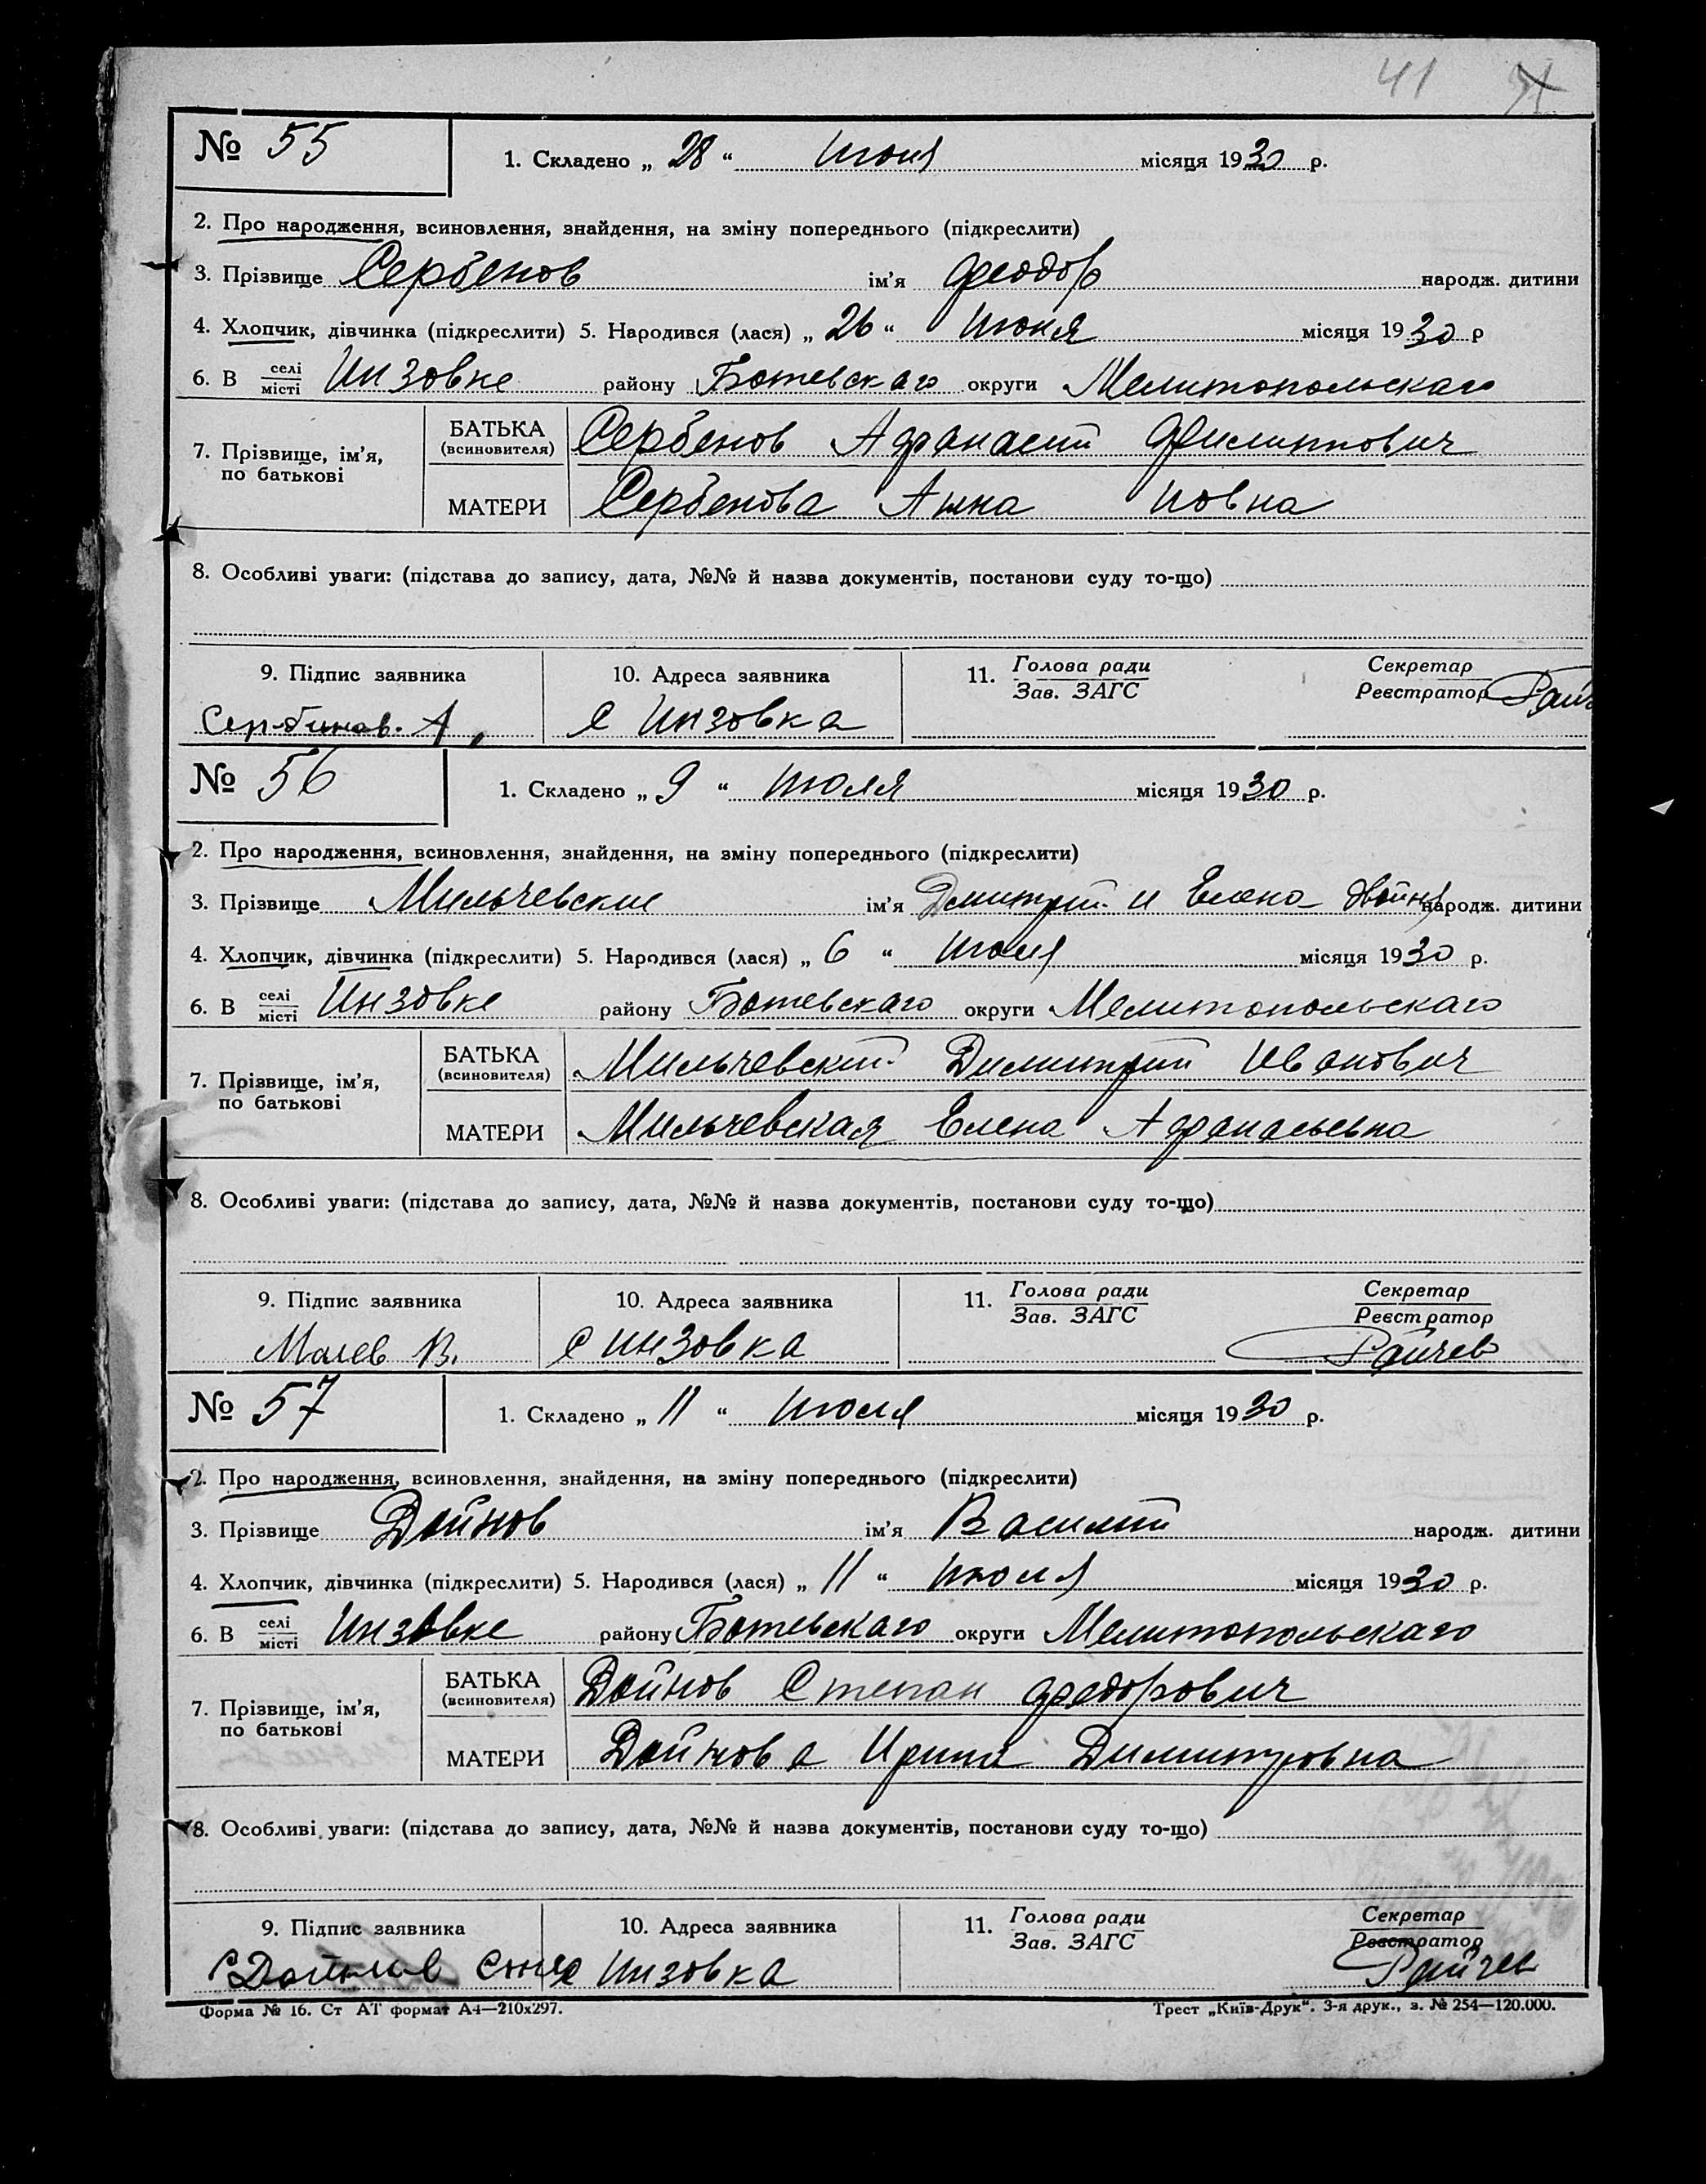 41
№ 55
1. Складено „ 28 “ Июня місяця 1930 р.
2. Про народження, всиновлення, знайдення, на зміну попереднього (підкреслити)
3. Прізвище Сербенов ім'я Феодор народж. дитини
4. Хлопчик, дівчинка (підкреслити) 5. Народився (лася) „ 26 “ Июня місяця 1930 р
6. В селі місті Инзовке району Ботевскаго округи Мелитопольскаго
7. Прізвище, ім'я, по батькові
БАТЬКА (всиновителя) Сербенов Афанасий Филиппович
МАТЕРИ Сербенова Анна новна
8. Особливі уваги: (підстава до запису, дата, №№ й назва документів, постанови суду то-що)
9. Підпис заявника 10. Адреса заявника 11. Голова ради Зав. ЗАГС Секретар Реєстратор
Сербинов. А, С Инзовка Райч
№ 56
1. Складено „ 9 “ Июля місяця 1930 р.
2. Про народження, всиновлення, знайдення, на зміну попереднього (підкреслити)
3. Прізвище Мильчевские ім'я Дмитрий и Елена двойня народж. дитини
4. Хлопчик, дівчинка (підкреслити) 5. Народився (лася) „ 6 “ Июля місяця 1930 р.
6. В селі місті Инзовке району Ботевскаго округи Мелитопольскаго
7. Прізвище, ім'я, по батькові
БАТЬКА (всиновителя) Мильчевский Димитрий Иванович
МАТЕРИ Мильчевская Елена Афанасьевна
8. Особливі уваги: (підстава до запису, дата, №№ й назва документів, постанови суду то-що)
9. Підпис заявника 10. Адреса заявника 11. Голова ради Зав. ЗАГС Секретар Реєстратор
В. С Инзовка Райчев
№ 57
1. Складено „ 11 “ Июля місяця 1930 р.
2. Про народження, всиновлення, знайдення, на зміну попереднього (підкреслити)
3. Прізвище Дойнов ім'я Василий народж. дитини
4. Хлопчик, дівчинка (підкреслити) 5. Народився (лася) „ 11 “ Июля місяця 1930 р.
6. В селі місті Инзовке району Ботевскаго округи Мелитопольскаго
7. Прізвище, ім'я, по батькові
БАТЬКА (всиновителя) Дойнов Степан Федорович
МАТЕРИ Дойнова Ирина Димитровна
8. Особливі уваги: (підстава до запису, дата, №№ й назва документів, постанови суду то-що)
9. Підпис заявника 10. Адреса заявника 11. Голова ради Зав. ЗАГС Секретар Реєстратор
С Инзовка Райчев
Форма № 16. Ст АТ формат А4—210х297. Трест „Київ-Друк“. 3-я друк., з. № 254—120.000.